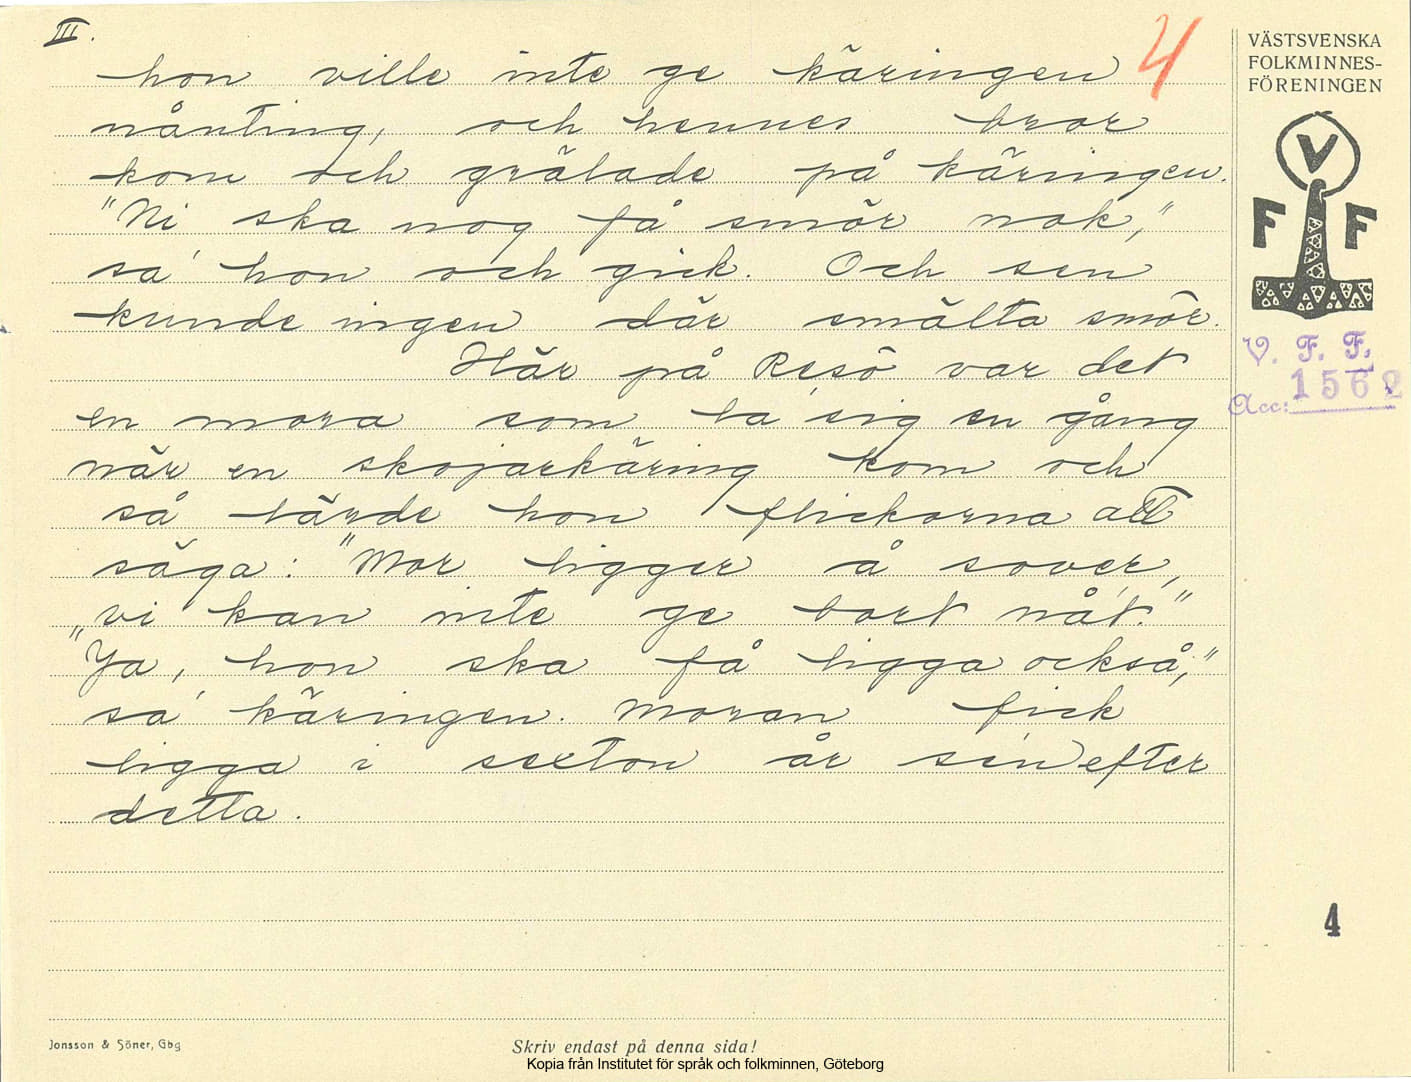 III.
4
hon ville inte ge käringen
nånting, och hennes bror
kom och grälade på käringen.
"Ni ska nog få smör nok,"
sa' hon och gick. Och sen
kunde ingen där smälta smör.
Här på Resö var det
en mora som la' sig en gång
när en skojarkäring kom och
så lärde hon flickorna att
säga: "Mor ligger å sover,
"vi kan inte ge bort nåt."
"Ja, hon ska få ligga också,"
sa' käringen. Moran fick
ligga i sexton år sen efter
detta.
VÄSTSVENSKA
FOLKMINNES-
FÖRENINGEN
V
F F
V. F. F.
Acc: 1562
4
Jonsson & Söner, Gbg
Skriv endast på denna sida!
Kopia från Institutet för språk och folkminnen, Göteborg